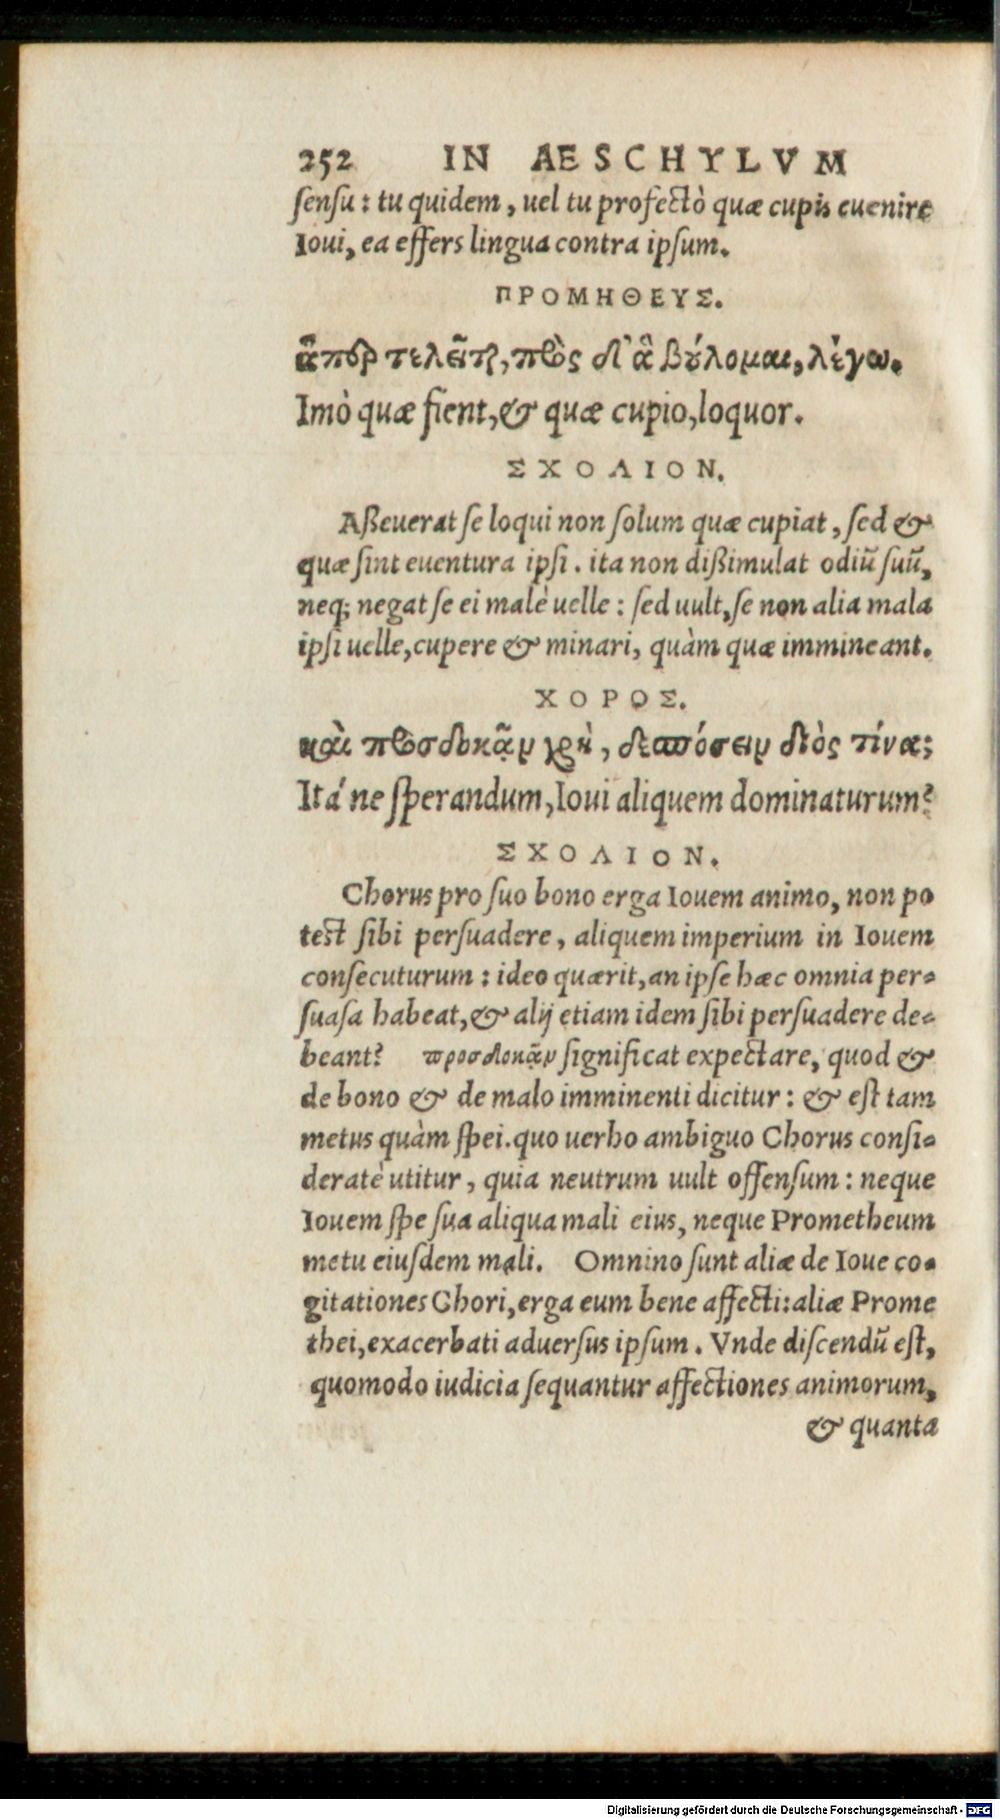 252 IN AESCHYLVM
sensu: tu quidem, uel tu profectò quæ cupis euenire
Ioui, ea effers lingua contra ipsum.
ΠΡΟΜΗΘΕΥΣ.
ἅπερ τελεῖται, πρὸς δ' ἃ βούλομαι, λέγω.
Imò quæ fient, & quæ cupio, loquor.
ΣΧΟΛΙΟΝ.
Aßeuerat se loqui non solum quæ cupiat, sed &
quæ sint euentura ipsi. ita non dißimulat odiũ suũ,
neq; negat se ei malè uelle: sed uult, se non alia mala
ipsi uelle, cupere & minari, quàm quæ immineant.
ΧΟΡΟΣ.
καὶ προσδοκᾷν χρὴ, δεσπόσειν διὸς τίνα;
Itá ne sperandum, Ioui aliquem dominaturum?
ΣΧΟΛΙΟΝ.
Chorus pro suo bono erga Iouem animo, non po
test sibi persuadere, aliquem imperium in Iouem
consecuturum: ideo quærit, an ipse hæc omnia per-
suasa habeat, & alij etiam idem sibi persuadere de-
beant? προσδοκᾷν significat expectare, quod &
de bono & de malo imminenti dicitur: & est tam
metus quàm spei. quo uerbo ambiguo Chorus consi-
deratè utitur, quia neutrum uult offensum: neque
Iouem spe sua aliqua mali eius, neque Prometheum
metu eiusdem mali. Omnino sunt aliæ de Ioue co-
gitationes Chori, erga eum bene affecti: aliæ Prome
thei, exacerbati aduersus ipsum. Vnde discendũ est,
quomodo iudicia sequantur affectiones animorum,
& quanta
Digitalisierung gefördert durch die Deutsche Forschungsgemeinschaft - DFG